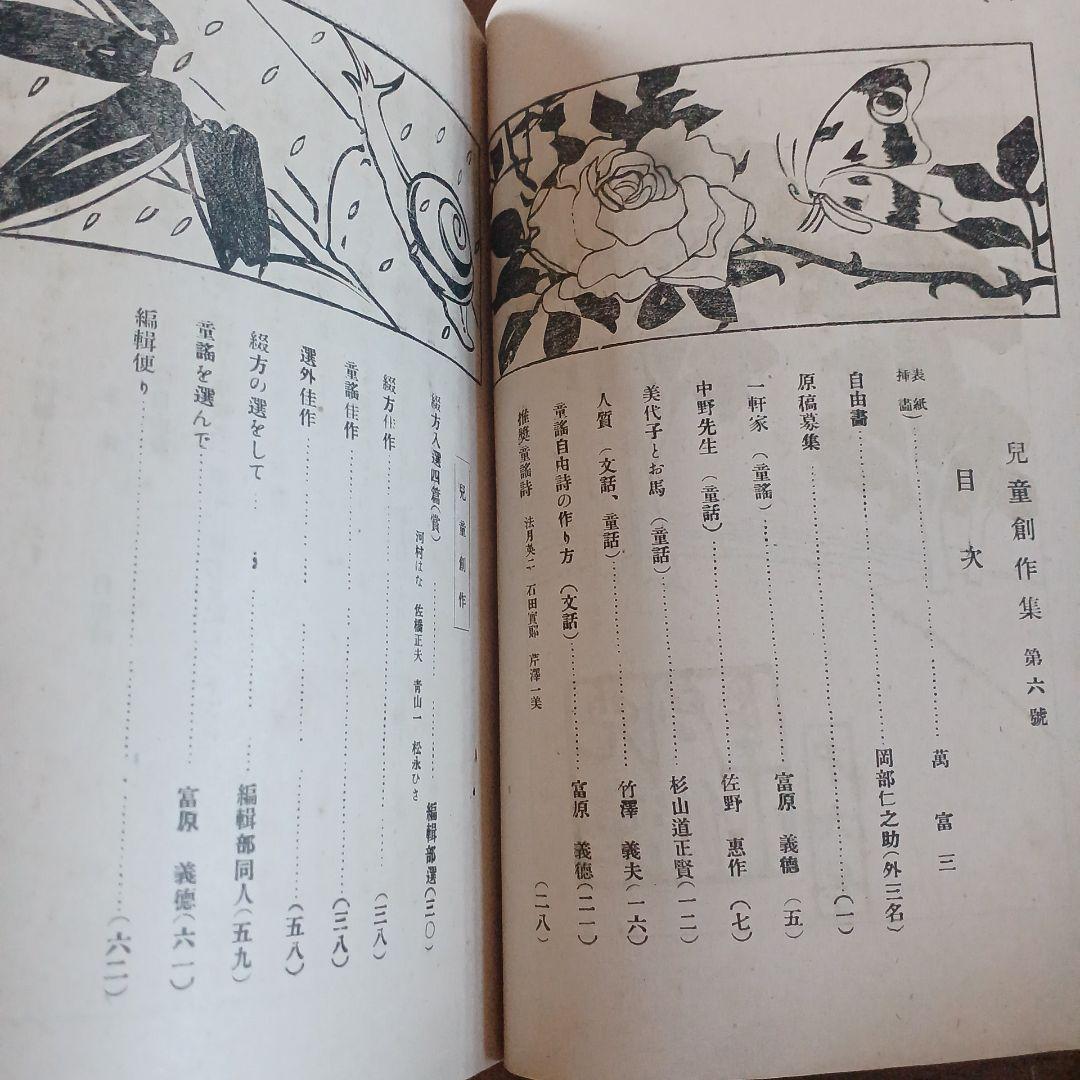 兒童創作集 第六號
目次
表紙
挿畫……萬富三
自由畫……岡部仁之助(外三名)
原稿募集……(一)
一軒家(童謠)……富原義德(五)
中野先生(童話)……佐野惠作(七)
美代子とお馬(童話)……杉山道正賢(一二)
人質(文話、童話)……竹澤義夫(一六)
童謠自由詩の作り方(文話)……富原義德(二一)
推奬童謠詩 法月英二 石田實 芹澤一美(二八)
兒童創作
綴方入選四篇(賞)……編輯部選(三〇)
河村はな 佐橋正夫 青山一 松永ひさ
綴方佳作……(三八)
童謠佳作……(三八)
選外佳作……(五八)
綴方の選をして……編輯部同人(五九)
童謠を選んで……富原義德(六一)
編輯便り……(六二)